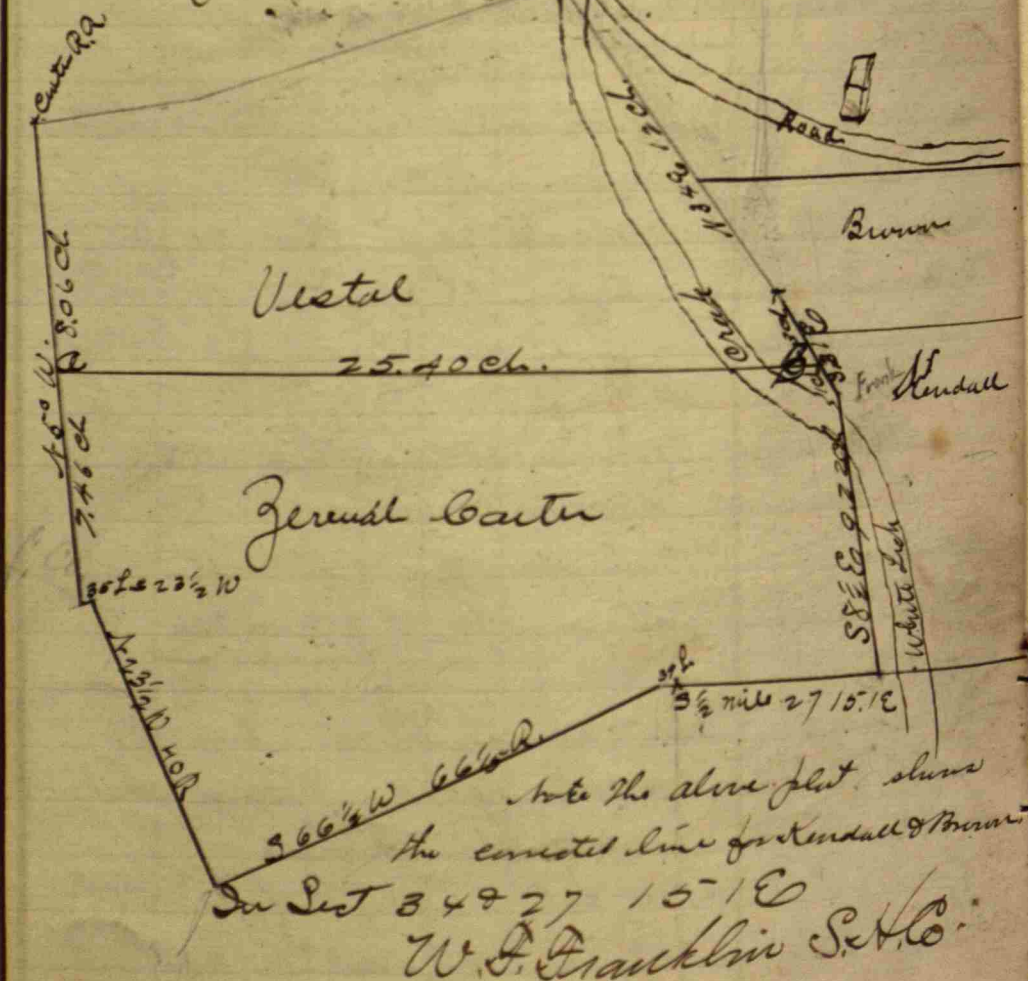 Center R.R.
Road
N 34 E 12 Ch.
Brown
Vestal
8.06 Ch
N 5° W.
25.40 Ch.
Creek
Frank Kendall
7.46 Ch
Zerendl Carter
S 8½ E 9.22 Ch
White Lick
35 L S 23½ W
N 23½ W 40 R
37 L
S ½ mile 27 15.1E
S 66½ W 66½ R.
Note the above plat shows
the corrected line for Kendall & Brown.
In Sect 34 & 27 15 1E
W. F. Franklin S.H.C.